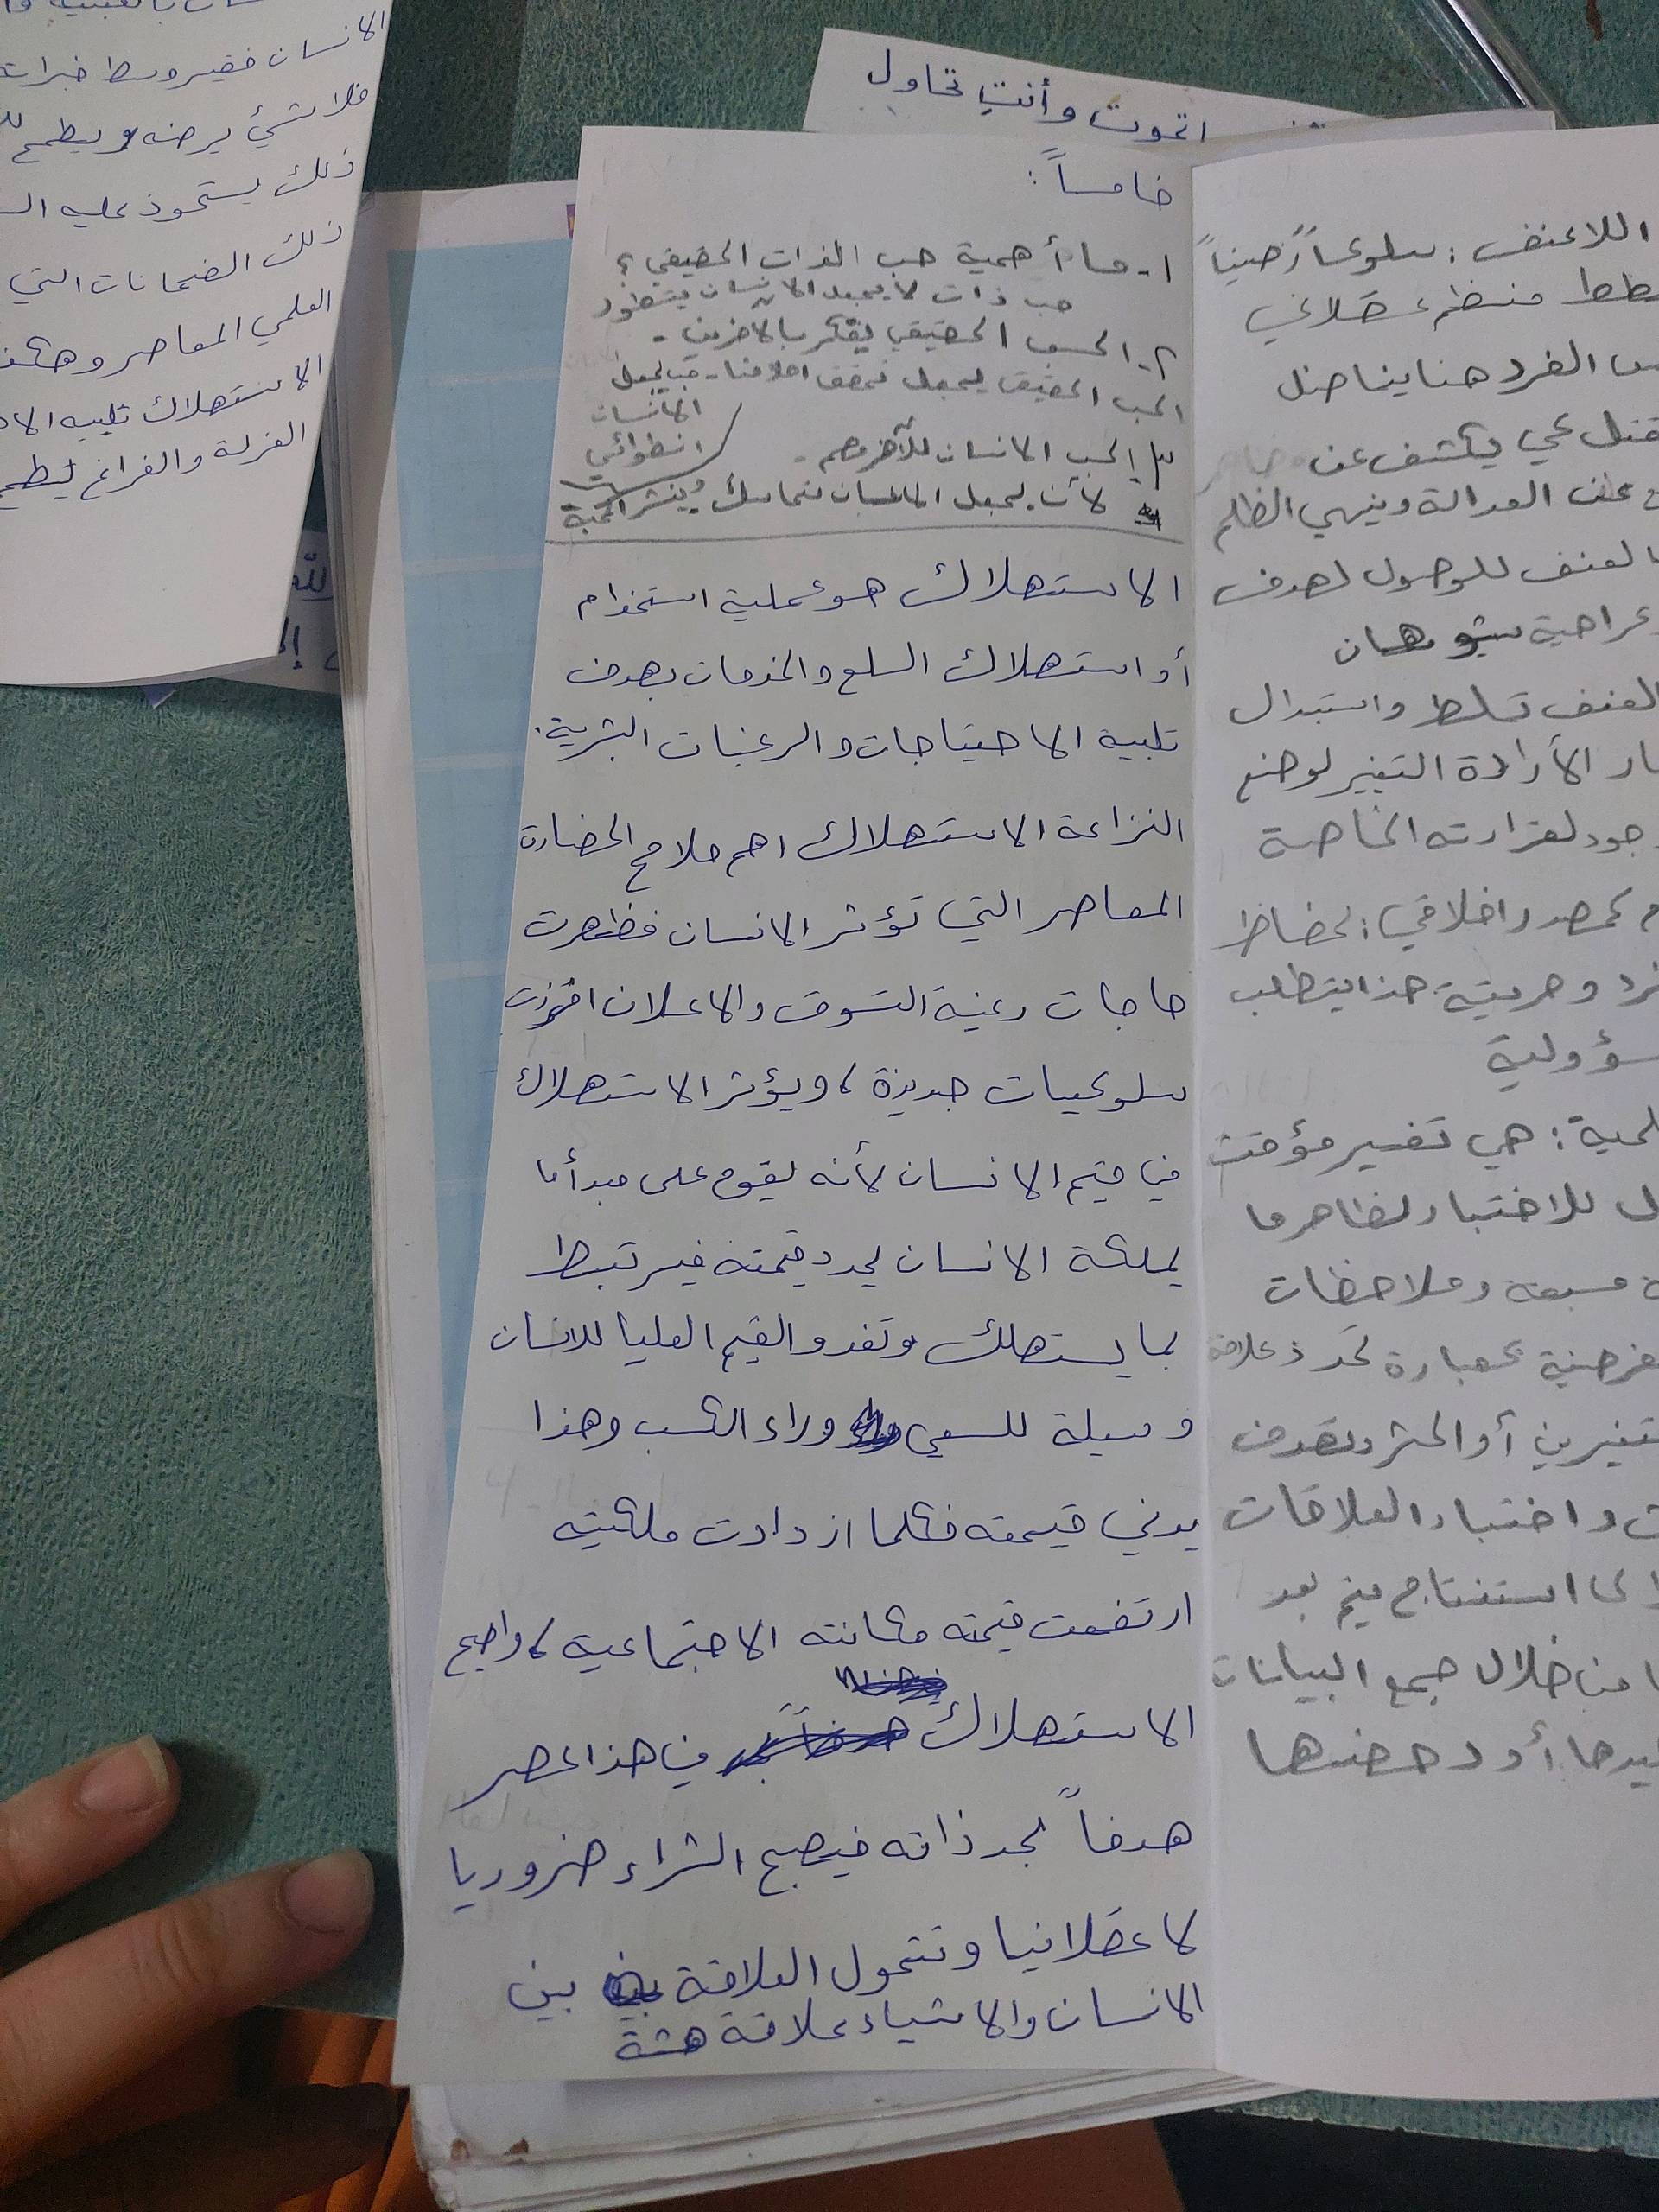 الانسان فقير وسط خبراته
فلا شيء يرضه ويطمح
ذلك يستحوذ عليه
ذلك الضمانات التي
العلمي المعاصر وهكذا
الاستهلاك تلبيه
العزلة والفراغ
تموت وأنت تحاول
خامساً:
١- ما أهمية حب الذات الحقيقي؟
حب ذات لا يجعل الانسان يتطور
٢- الحب الحقيقي يفكر بالآخرين.
الحب الحقيقي يجعل نحقق احلامنا - يجعل
الانسان
انطوائي
٣- الحب الانسان للآخر مهم.
لأن يجعل الانسان متماسك وينشر المحبة
الاستهلاك هو عملية استخدام
أو استهلاك السلع والخدمات بهدف
تلبية الاحتياجات والرغبات البشرية.
النزاعة الاستهلاك اهم ملامح الحضارة
المعاصر التي تؤثر الانسان فظهرت
حاجات رغبة التسوق والاعلان افرزت
سلوكيات جديدة، ويؤثر الاستهلاك
في قيم الانسان لأنه يقوم على مبدأ ما
يملكة الانسان يحدد قيمته فيرتبط
بما يستهلك وتغدو القيم العليا للانسان
وسيلة للسعي وراء الكسب وهذا
يدني قيمته فكلما ازدادت ملكيته
ارتفعت قيمته مكانته الاجتماعية، واصبح
الاستهلاك في هذا عصر
هدفاً بحد ذاته فيصبح الشراء ضروريا
لا عقلانيا وتتحول العلاقة بين
الانسان والاشياء علاقة هشة
اللاعنف: سلوكاً رصيناً
منظم عقلاني
الفرد هنا يناضل
كي يكشف عن
عن العدالة وينهي الظلم
العنف للوصول لهدف
العنف تسلط واستبدال
الأرادة التغيير لوضع
لقراراته الخاصة
كمصدر اخلاقي: لحفاظ
وحريته هذا يتطلب
: هي تفسير مؤقت
للاختبار لظاهر ما
مسبقة وملاحظات
كعبارة تحدد علاقة
متغيرين أو اكثر وتهدف
واختبار العلاقات
استنتاج فيتم بعد
من خلال جمع البيانات
أو دحضها